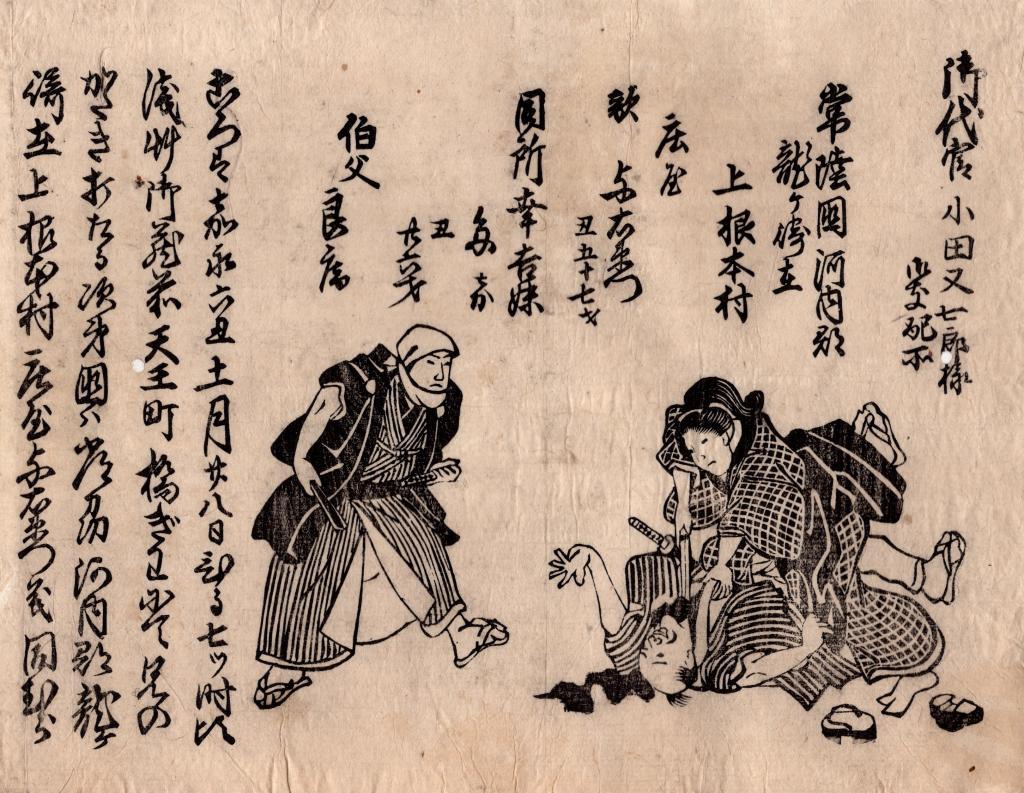 御代官 小田又七郎様
御支配所
常陸国河内郡
龍ヶ崎在
上根本村
庄屋
敵 与右衛門
丑五十七才
同所幸吉妹
たか
丑
廿六才
伯父
良庵
ころは嘉永六丑十一月廿八日ひる七ツ時比
浅草御蔵前天王町橋ぎわにて兄の
かたきおたる次第国は常州河内郡龍ケ
崎在上根本村庄屋与右衛門義同村